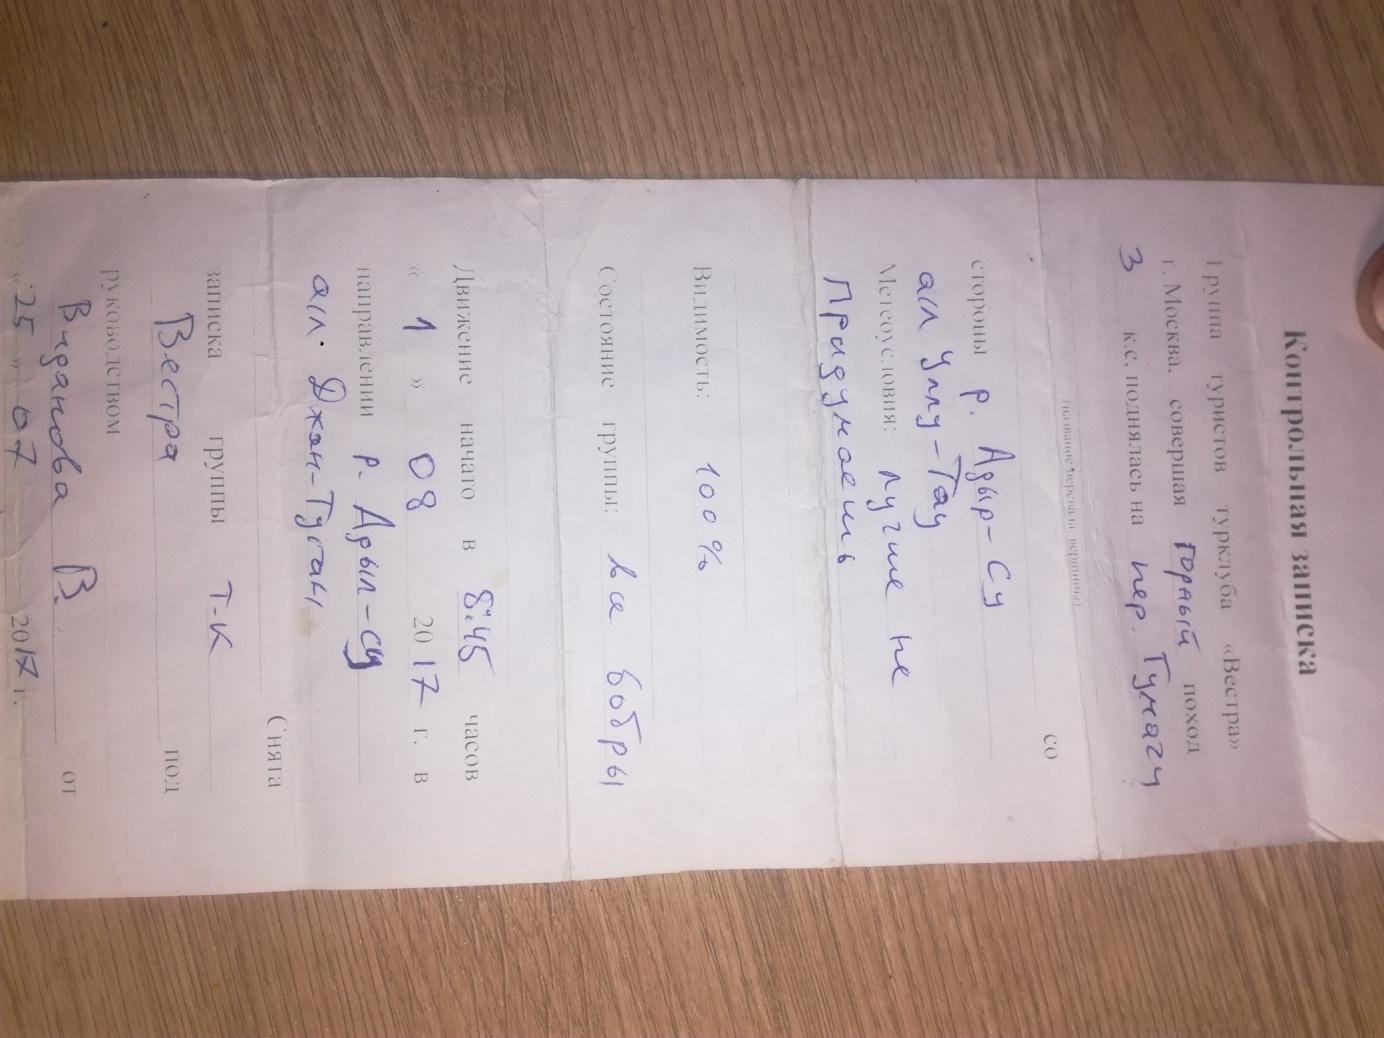 Контрольная записка
Группа туристов турклуба «Вестра»
г. Москва, совершая горный поход
3 к.с. поднялась на пер. Тумачу
(название перевала, вершины)
со
стороны р. Адыр-Су
алл Уллу-Тау
Метеоусловия: лучше не
придумаешь
Видимость: 100%
Состояние группы: все бобры
Движение начато в 8:45 часов
« 1 » 08 2017 г. в
направлении р. Адыл-су
ал. Джан-Туган
Снята
записка группы Т-К
Вестра под
руководством
Виданова В. от
«25» 07 2017 г.